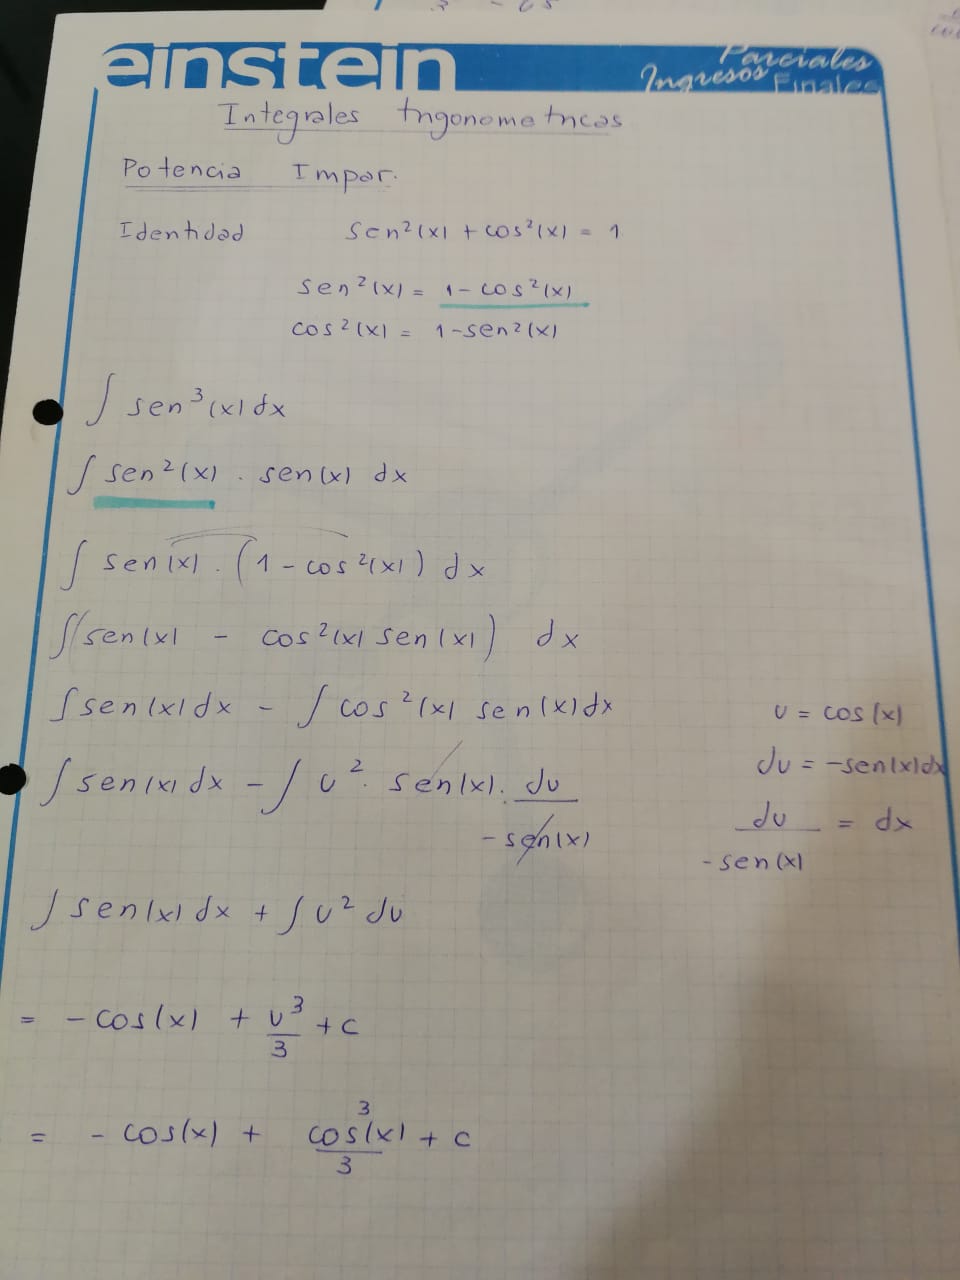 einstein
Parciales
Ingresos Finales
Integrales trigonometricas
Potencia Impar.
Identidad sen²(x) + cos²(x) = 1
sen²(x) = 1 - cos²(x)
cos²(x) = 1 - sen²(x)
∫ sen³(x) dx
∫ sen²(x) . sen(x) dx
∫ sen(x) . (1 - cos²(x)) dx
∫(sen(x) - cos²(x) sen(x)) dx
∫ sen(x) dx - ∫ cos²(x) sen(x) dx
u = cos(x)
du = -sen(x)dx
du/-sen(x) = dx
∫ sen(x) dx - ∫ u² . sen(x) . du/-sen(x)
∫ sen(x) dx + ∫ u² du
= - cos(x) + u³/3 + c
= - cos(x) + cos³(x)/3 + c